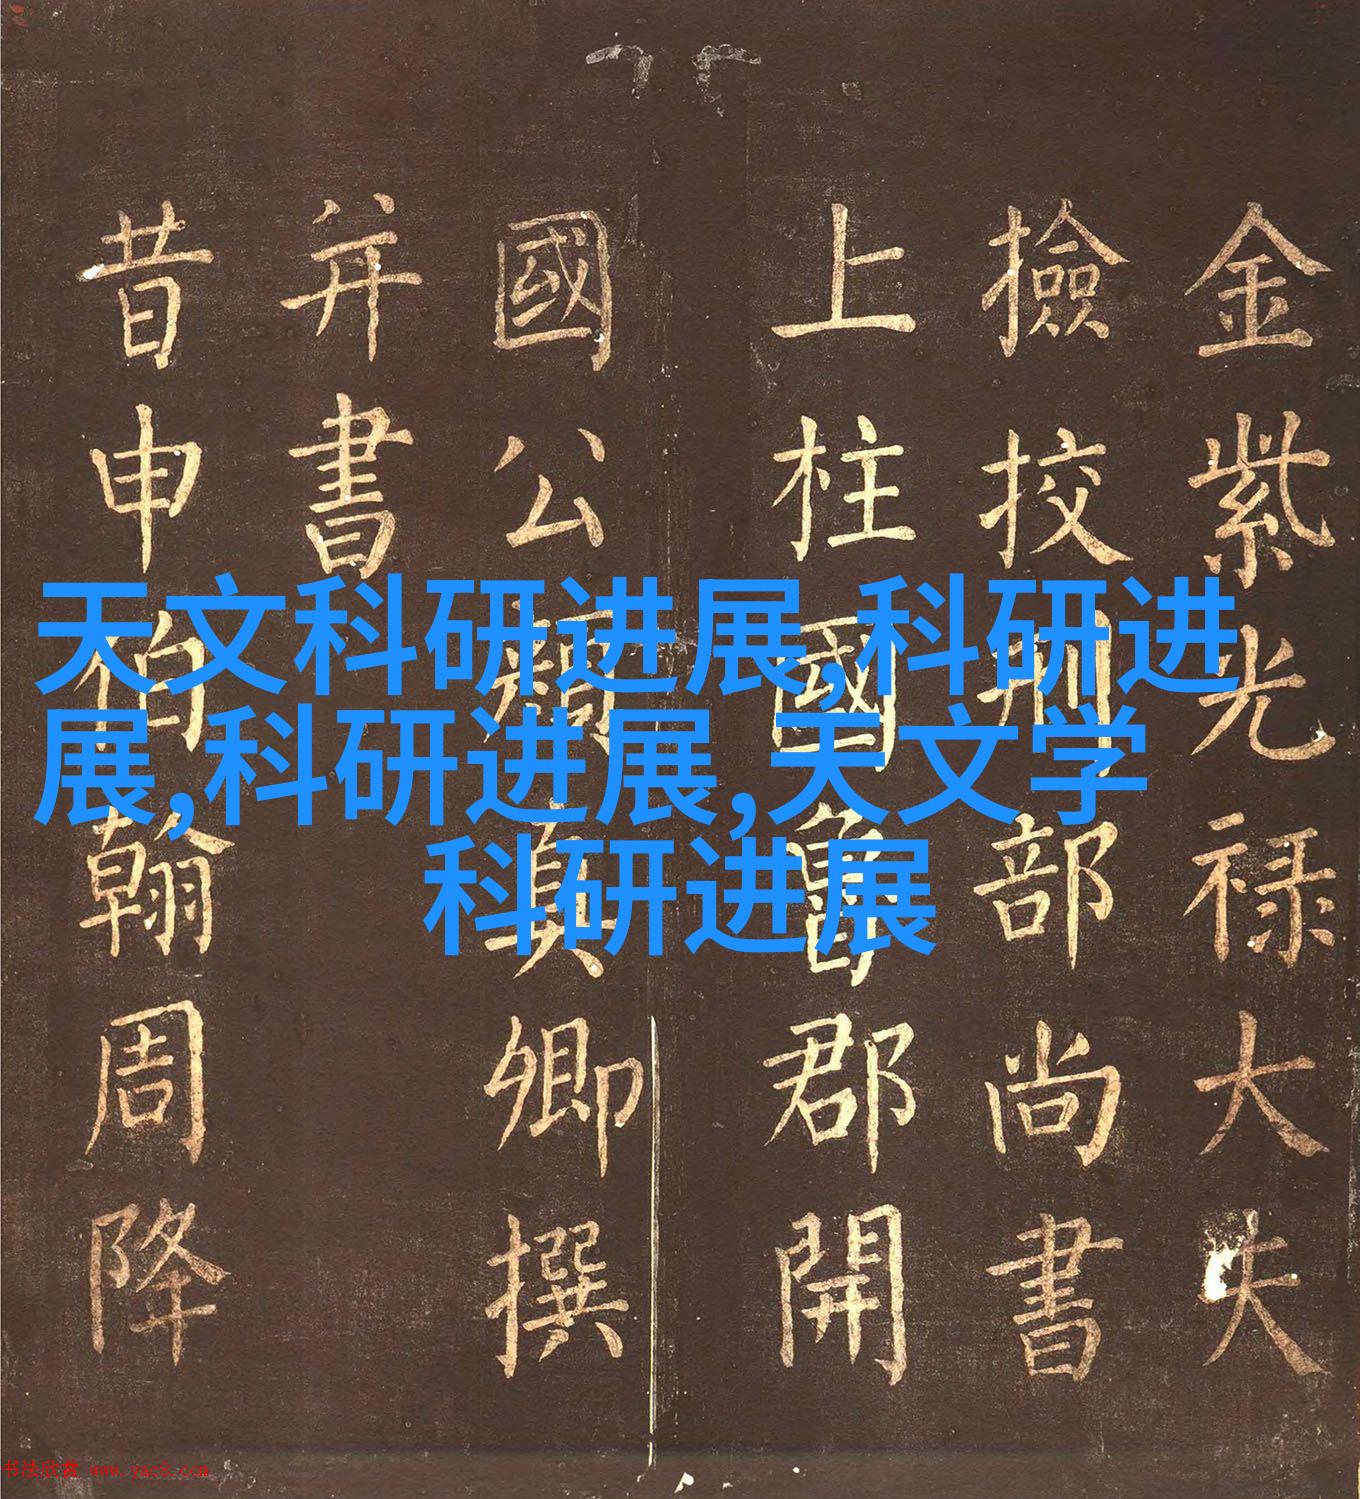 金紫光禄大夫
撿挍刑部尚書
上柱國魯郡開
國公顔真卿撰
并書
昔申伯翰周降
天文科研进展,科研进
展,科研进展,天文学
科研进展
书法欣赏 www.yac8.com